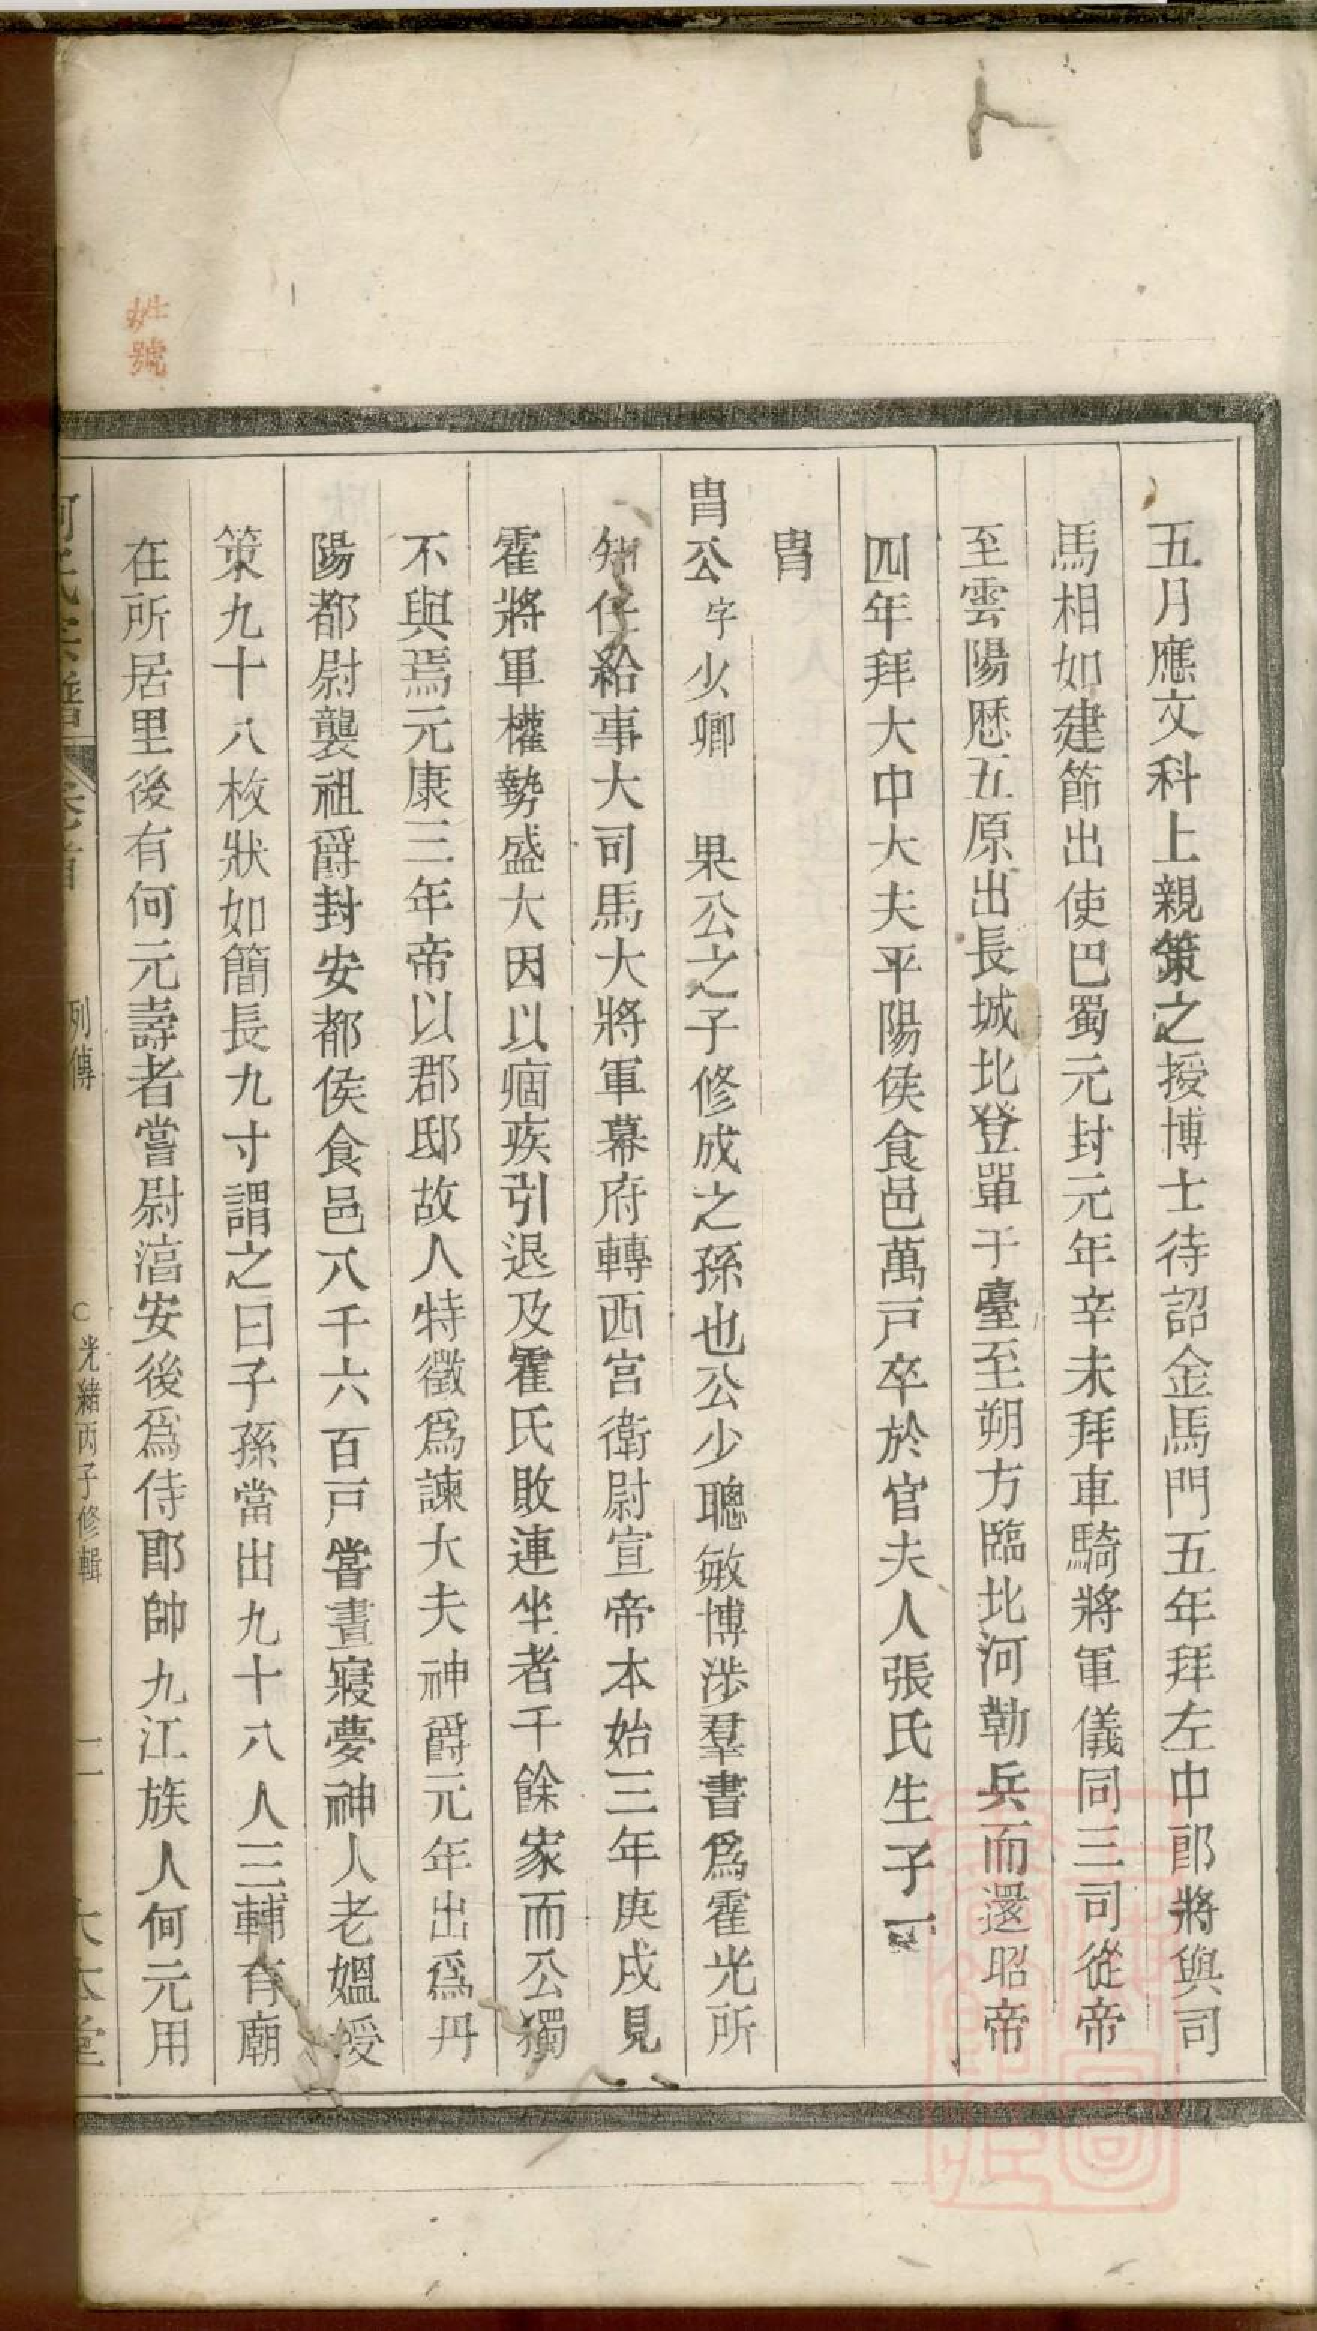 五月應文科上親策之授博士待詔金馬門五年拜左中郎將與司
馬相如建節出使巴蜀元封元年辛未拜車騎將軍儀同三司從帝
至雲陽歷五原出長城北登單于臺至朔方臨北河勒兵而還昭帝
四年拜大中大夫平陽侯食邑萬戸卒於官夫人張氏生子一
胄
胄公字少卿 果公之子修成之孫也公少聰敏博涉羣書爲霍光所
知任給事大司馬大將軍幕府轉西宮衛尉宣帝本始三年庚戌見
霍將軍權勢盛大因以痼疾引退及霍氏敗連坐者千餘家而公獨
不與焉元康三年帝以郡邸故人特徵爲諫大夫神爵元年出爲丹
陽都尉襲祖爵封安都侯食邑八千六百戸嘗晝寢夢神人老媼授
策九十八枚狀如簡長九寸謂之曰子孫當出九十八人三輔有廟
在所居里後有何元壽者嘗尉湻安後爲侍郎帥九江族人何元用
何氏宗譜 卷首 列傳 光緒丙子修輯 二 大本堂
姓號